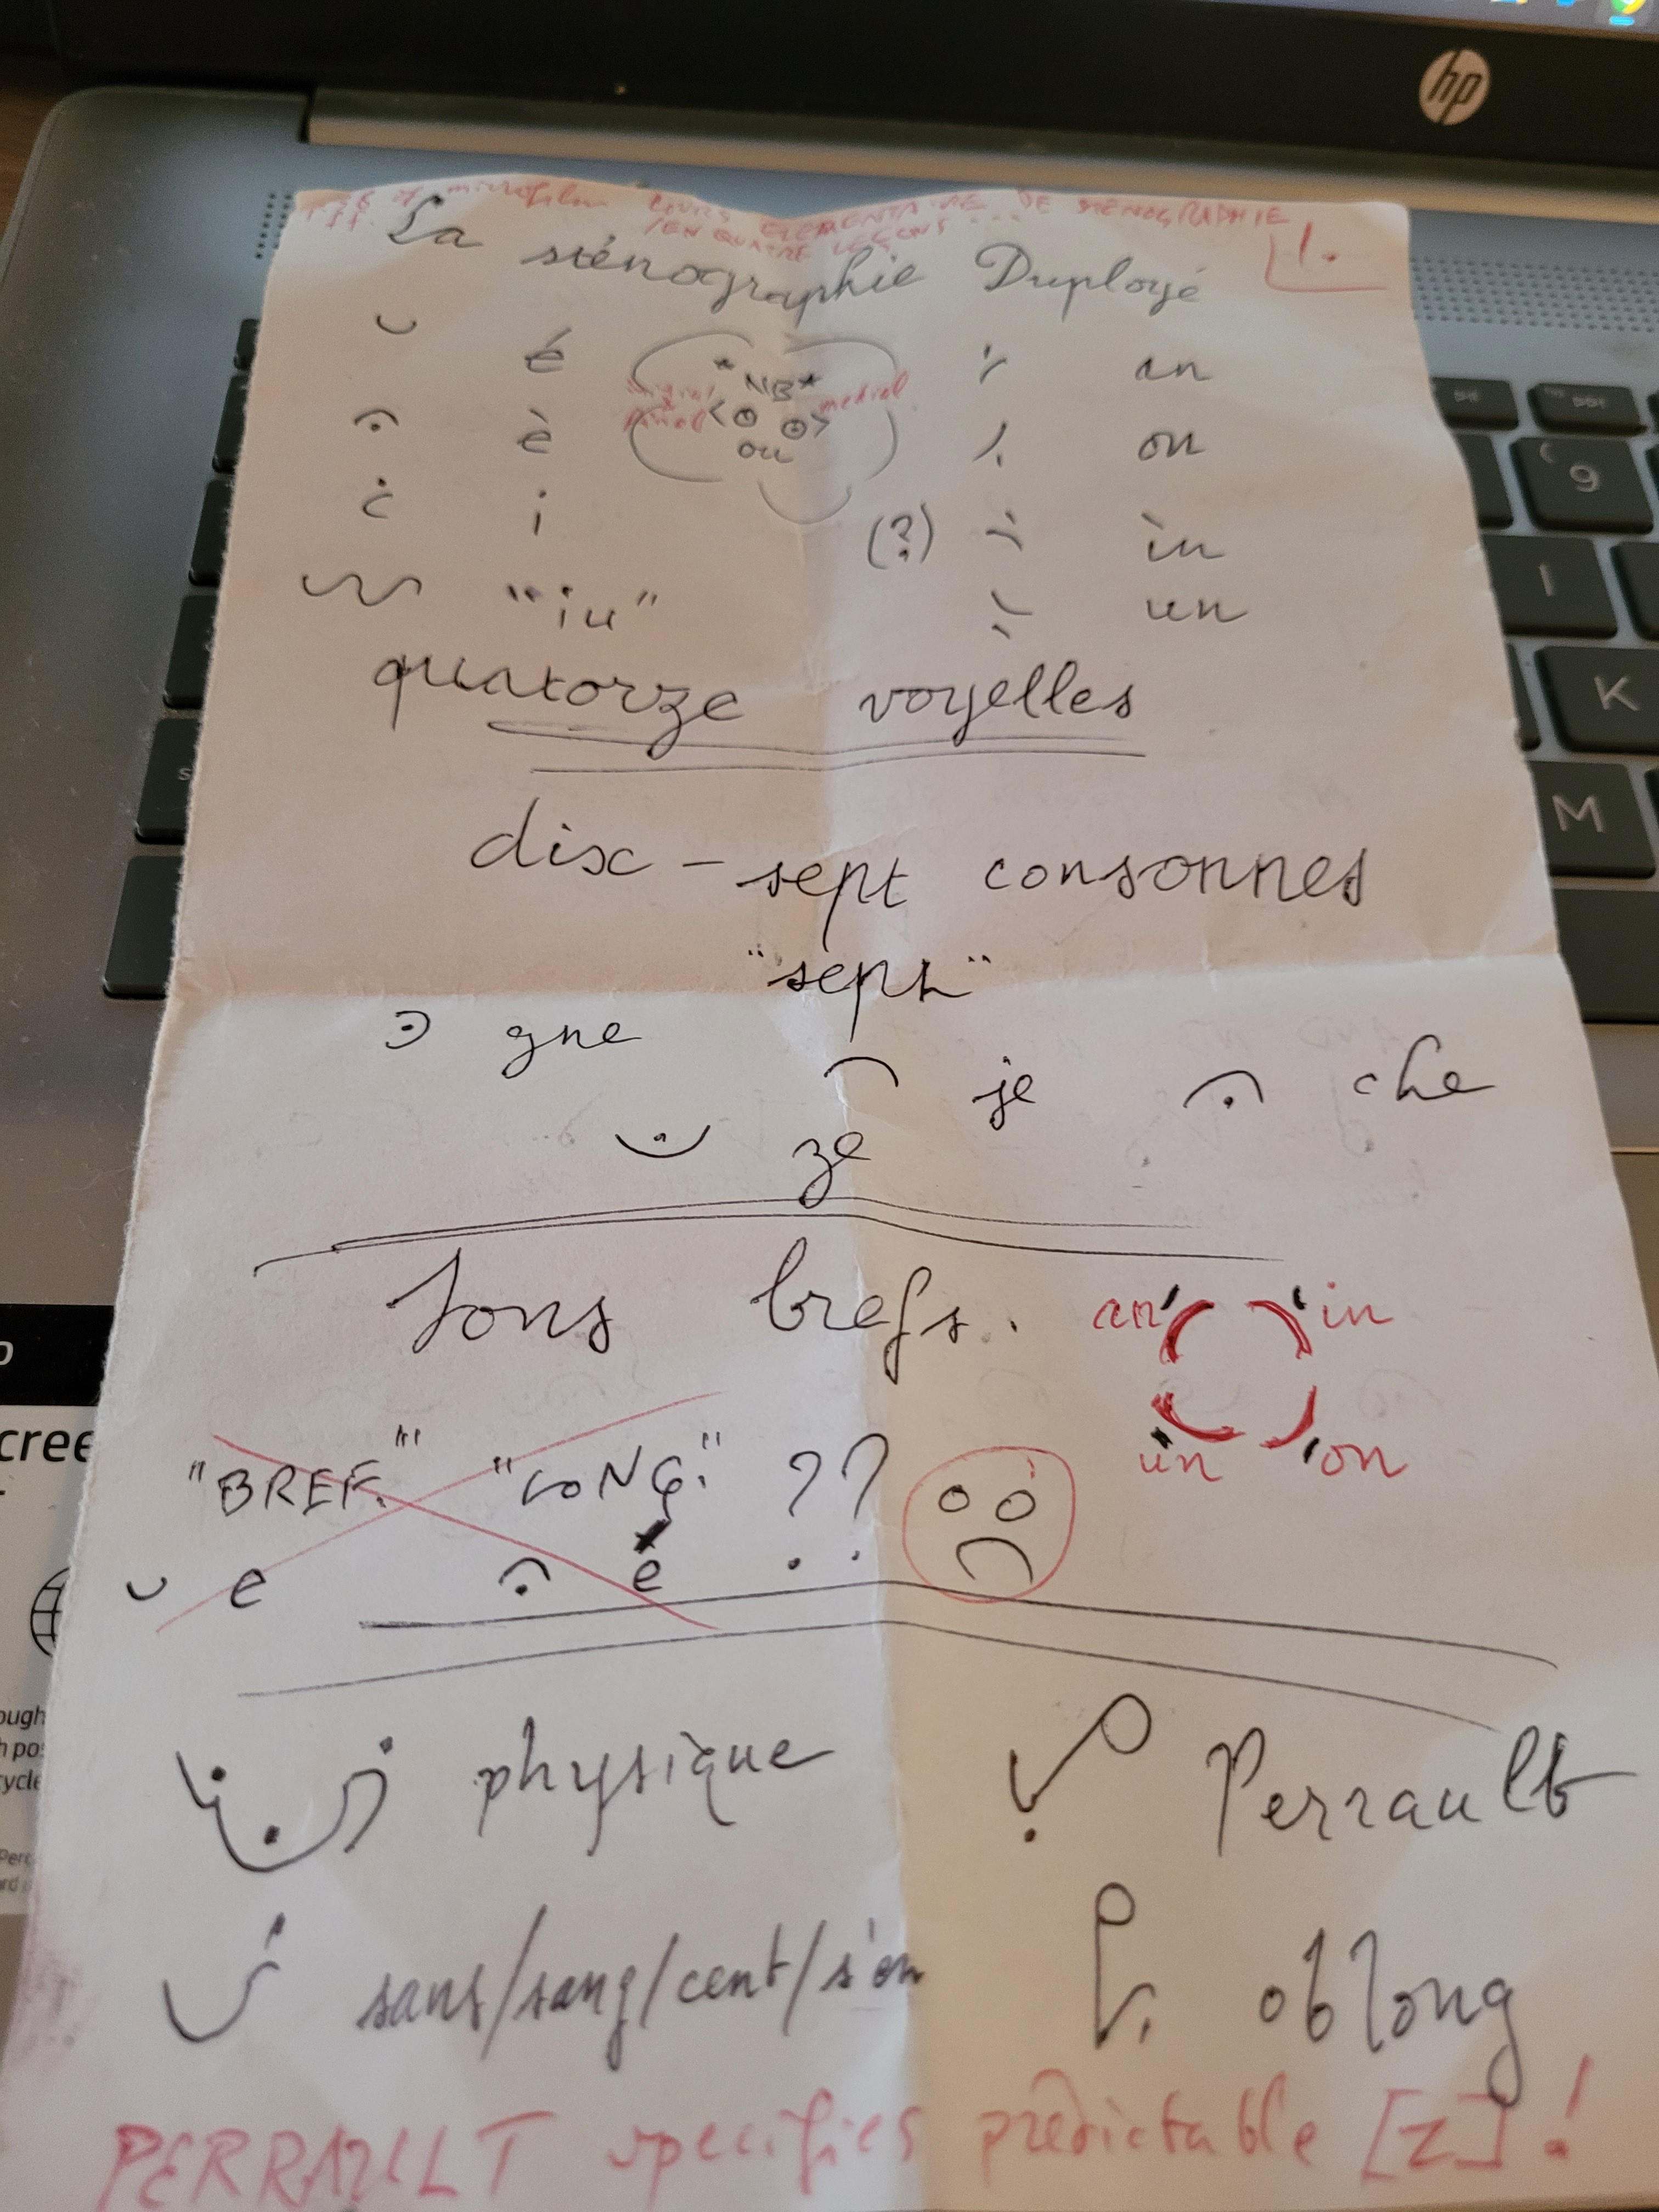 hp
of microfilm COURS ELEMENTAIRE DE STÉNOGRAPHIE
/EN QUATRE LEÇONS...
1.
La sténographie Duployé
é
*NB*
medial
an
è
ou
on
i
(?) in
"iu"
un
quatorze voyelles
dix-sept consonnes
"sept"
gne
je
che
ze
Sons brefs.
an in
un on
"BREF." "LONG." ??
e é
physique Perrault
sans/sang/cent/s'en oblong
PERRAULT specifies predictable [z]!
9
I
K
M
cree
ough